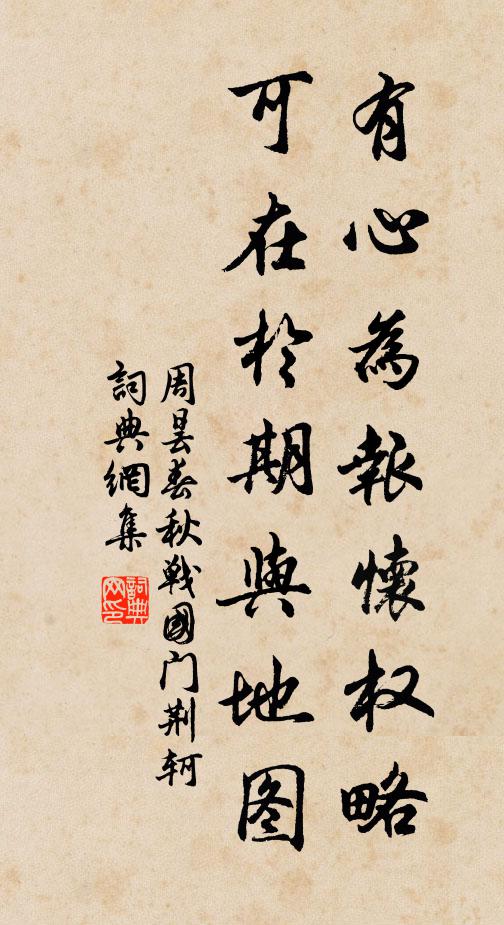 有心為報懷权略
可在於期與地图
周昙春秋戦國门荆轲
詞典網集
詞典网印